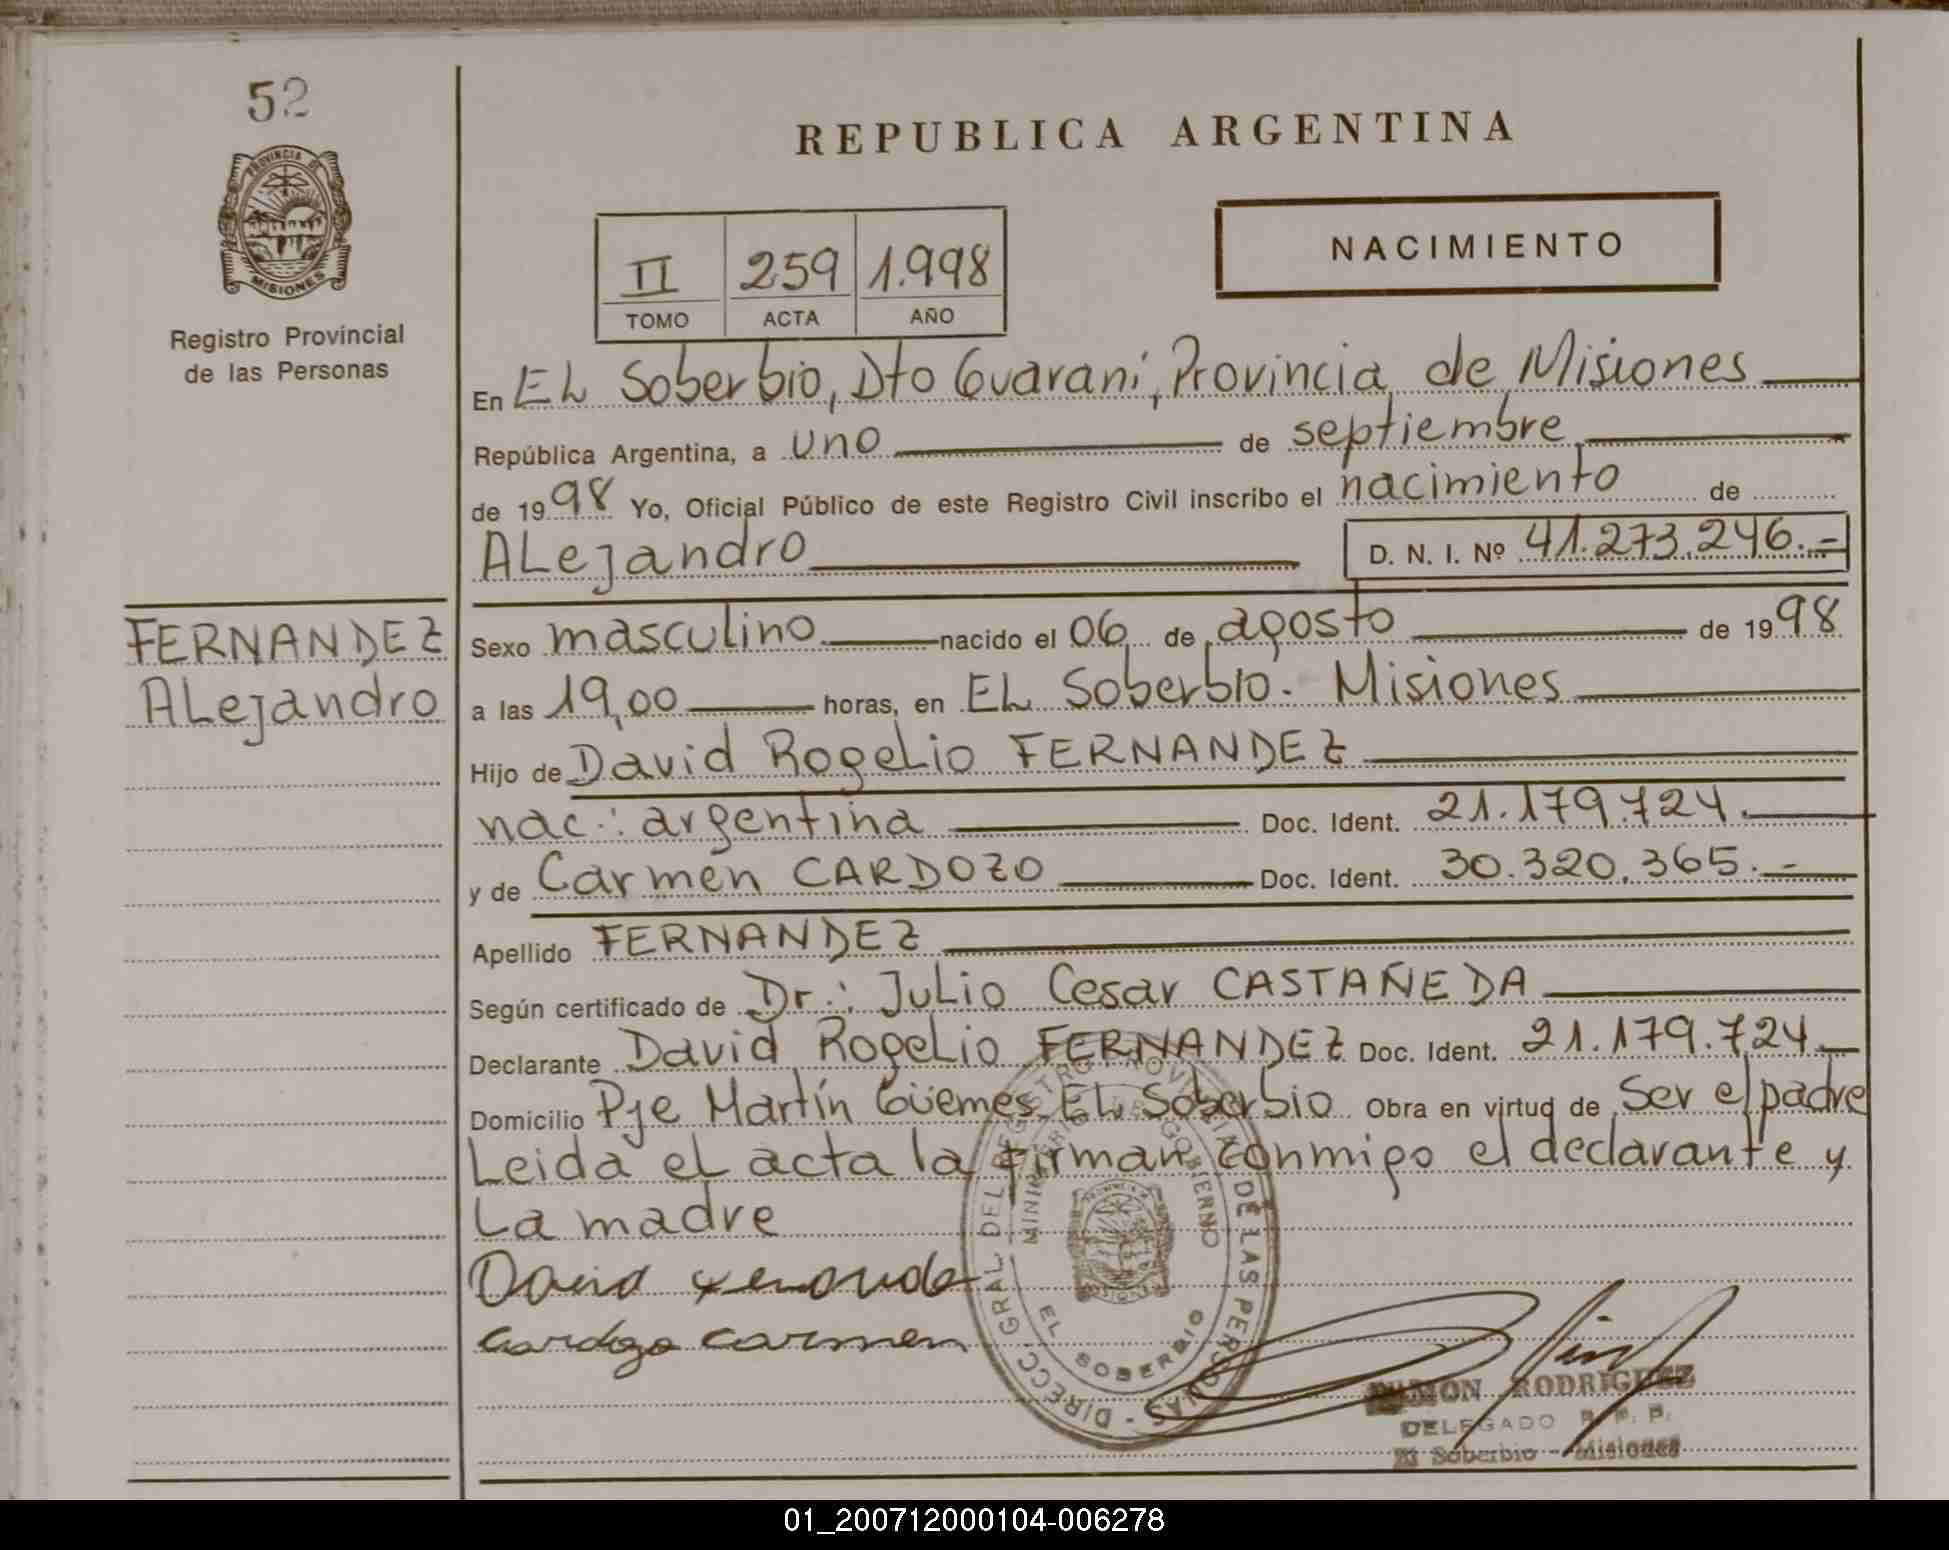 52
PROVINCIA DE
MISIONES
Registro Provincial
de las Personas
REPUBLICA ARGENTINA
II 259 1.998
TOMO ACTA AÑO
NACIMIENTO
En EL Soberbio, Dto Guaraní, Provincia de Misiones
República Argentina, a uno de septiembre
de 1998 Yo, Oficial Público de este Registro Civil inscribo el nacimiento de
ALejandro D. N. I. Nº 41.273.246.-
FERNANDEZ
ALejandro
Sexo masculino nacido el 06 de agosto de 1998
a las 19,00 horas, en EL Soberbio. Misiones
Hijo de David RogeLio FERNANDEZ
nac.: argentina Doc. Ident. 21.179.724.
y de Carmen CARDOZO Doc. Ident. 30.320.365.-
Apellido FERNANDEZ
Según certificado de Dr.: JuLio Cesar CASTAÑEDA
Declarante David RogeLio FERNANDEZ Doc. Ident. 21.179.724
Domicilio Pje Martín Güemes EL Soberbio Obra en virtud de Ser el padre
Leida el acta la firman conmigo el declarante y
La madre
David
Cardozo Carmen
DIRECC. GRAL DEL REGISTRO PROVINCIAL DE LAS PERSONAS -
MINISTERIO DE GOBIERNO
EL SOBERBIO
RAMON RODRIGUEZ
DELEGADO R. P. P.
El Soberbio - Misiones
01_200712000104-006278